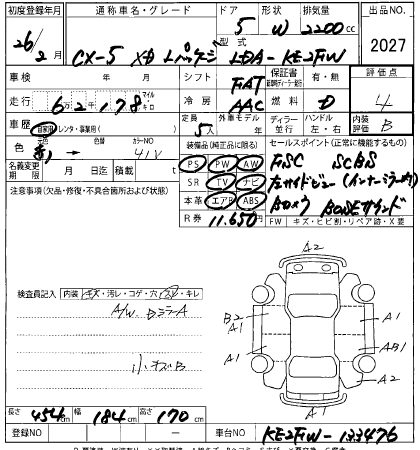 初度登録年月 通称車名・グレード ドア 形状 排気量 出品NO.
26年 2月 CX-5 XD Lパッケージ 5 W 2200cc 2027
型式 LDA-KE2FW
車検 年 月 シフト FAT 保証書 有・無 評価点 4
走行 6万2千178 マイル キロ 冷房 AAC 燃料 D 内装評価 B
車歴 自家用 レンタ・事業用( ) 定員 5人 外車モデル 年 ディーラー 並行 ハンドル 左・右
色 元色 色替 カラーNO 41V 装備品(純正品に限る) セールスポイント(正常に機能するもの)
PS PW AW FSC SCBS
名義変更期限 月 日迄 積載 t SR TV ナビ 左サイドビュー(インナーミラー内)
注意事項(欠品・修復・不具合箇所および状態) 本革 エアB ABS Bカメラ BOSEサウンド
R券 11.650円 FW キズ・ヒビ割・リペア跡・X要
検査員記入 内装 キズ・汚レ・コゲ・穴・スレ・キレ
A/W. BミラーA
小キズB
A2
B2
A1
A1
A1
AB1
A2
A2
長さ 454cm 幅 184cm 高さ 170cm
登録NO — 車台NO KE2FW-133476